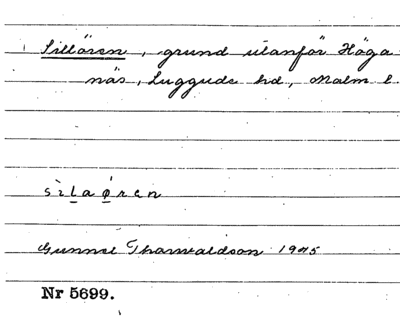 Sillören, grund utanför Höga
näs, Luggude hd, Malm l.
sìlaǿrɛn
Gunnel Thorvaldson 1945
Nr 5699.